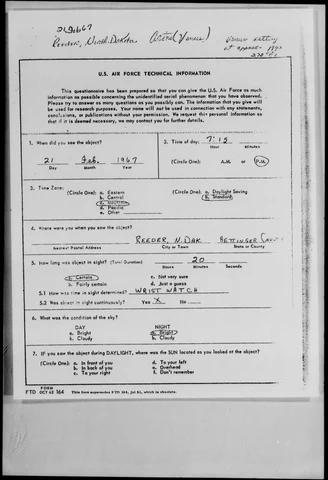 21 Feb 67
Reeder, North Dakota Astro (Venus) Venus setting
at approx.
U.S. AIR FORCE TECHNICAL INFORMATION
This questionnaire has been prepared so that you can give the U.S. Air Force as much
information as possible concerning the unidentified aerial phenomenon that you have observed.
Please try to answer as many questions as you possibly can. The information that you give will
be used for research purposes. Your name will not be used in connection with any statements,
conclusions, or publications without your permission. We request this personal information so
that if it is deemed necessary, we may contact you for further details.
1. When did you see the object?
21 Feb. 1967
Day Month Year
2. Time of day: 7:15
Hour Minutes
(Circle One): A.M. or P.M.
3. Time Zone:
(Circle One): a. Eastern
b. Central
c. Mountain
d. Pacific
e. Other
(Circle One): a. Daylight Saving
b. Standard
4. Where were you when you saw the object?
REEDER, N. DAK
Nearest Postal Address City or Town State or County
5. How long was object in sight? (Total Duration) 20
Hours Minutes Seconds
a. Certain c. Not very sure
b. Fairly certain d. Just a guess
5.1 How was time in sight determined? WRIST WATCH
5.2 Was object in sight continuously? Yes X No
6. What was the condition of the sky?
DAY NIGHT
a. Bright a. Bright
b. Cloudy b. Cloudy
7. IF you saw the object during DAYLIGHT, where was the SUN located as you looked at the object?
(Circle One): a. In front of you d. To your left
b. In back of you e. Overhead
c. To your right f. Don't remember
FORM
FTD OCT 62 164 This form supersedes FTD 164, Jul 61, which is obsolete.